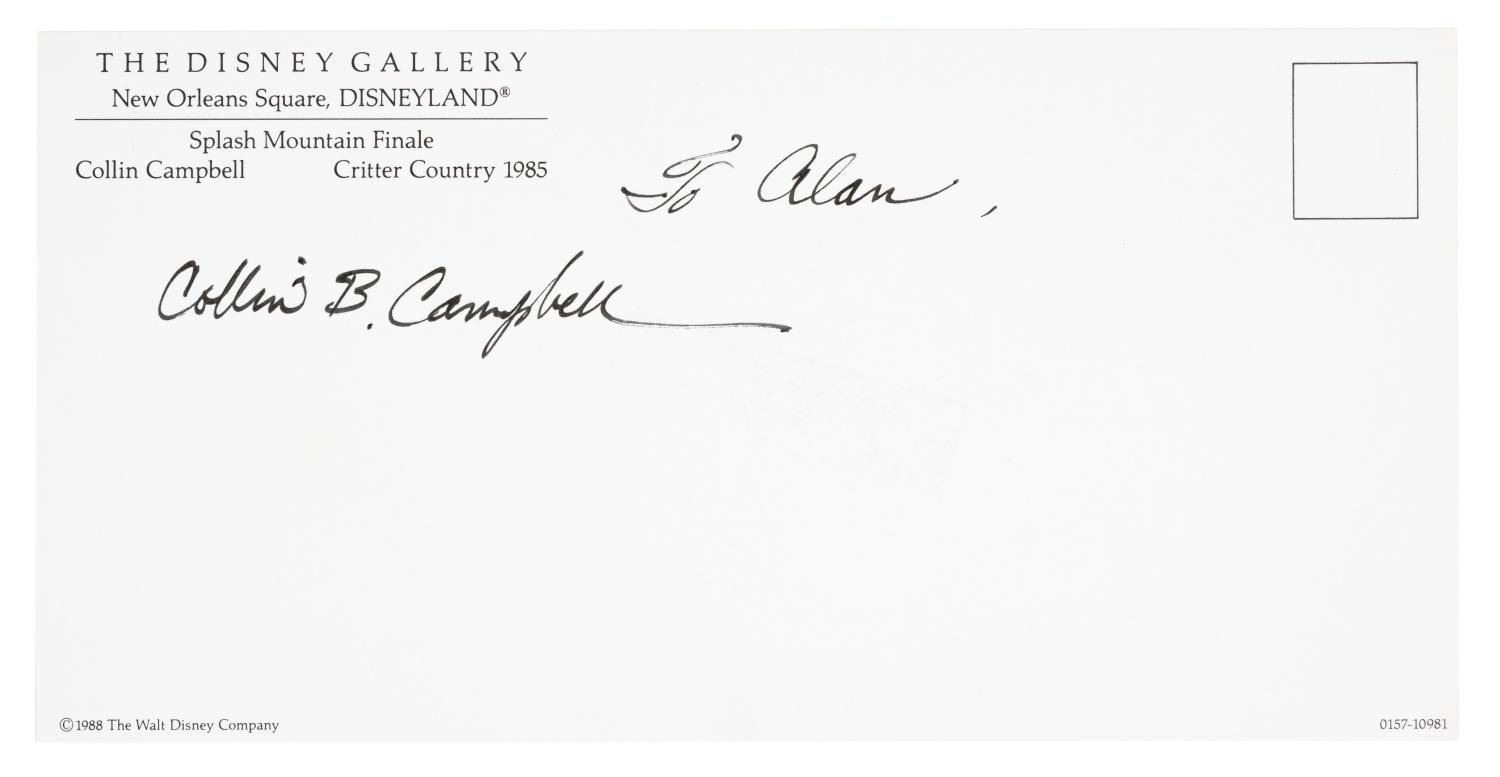 THE DISNEY GALLERY
New Orleans Square, DISNEYLAND®
Splash Mountain Finale
Collin Campbell Critter Country 1985
To Alan,
Collin B. Campbell
©1988 The Walt Disney Company
0157-10981